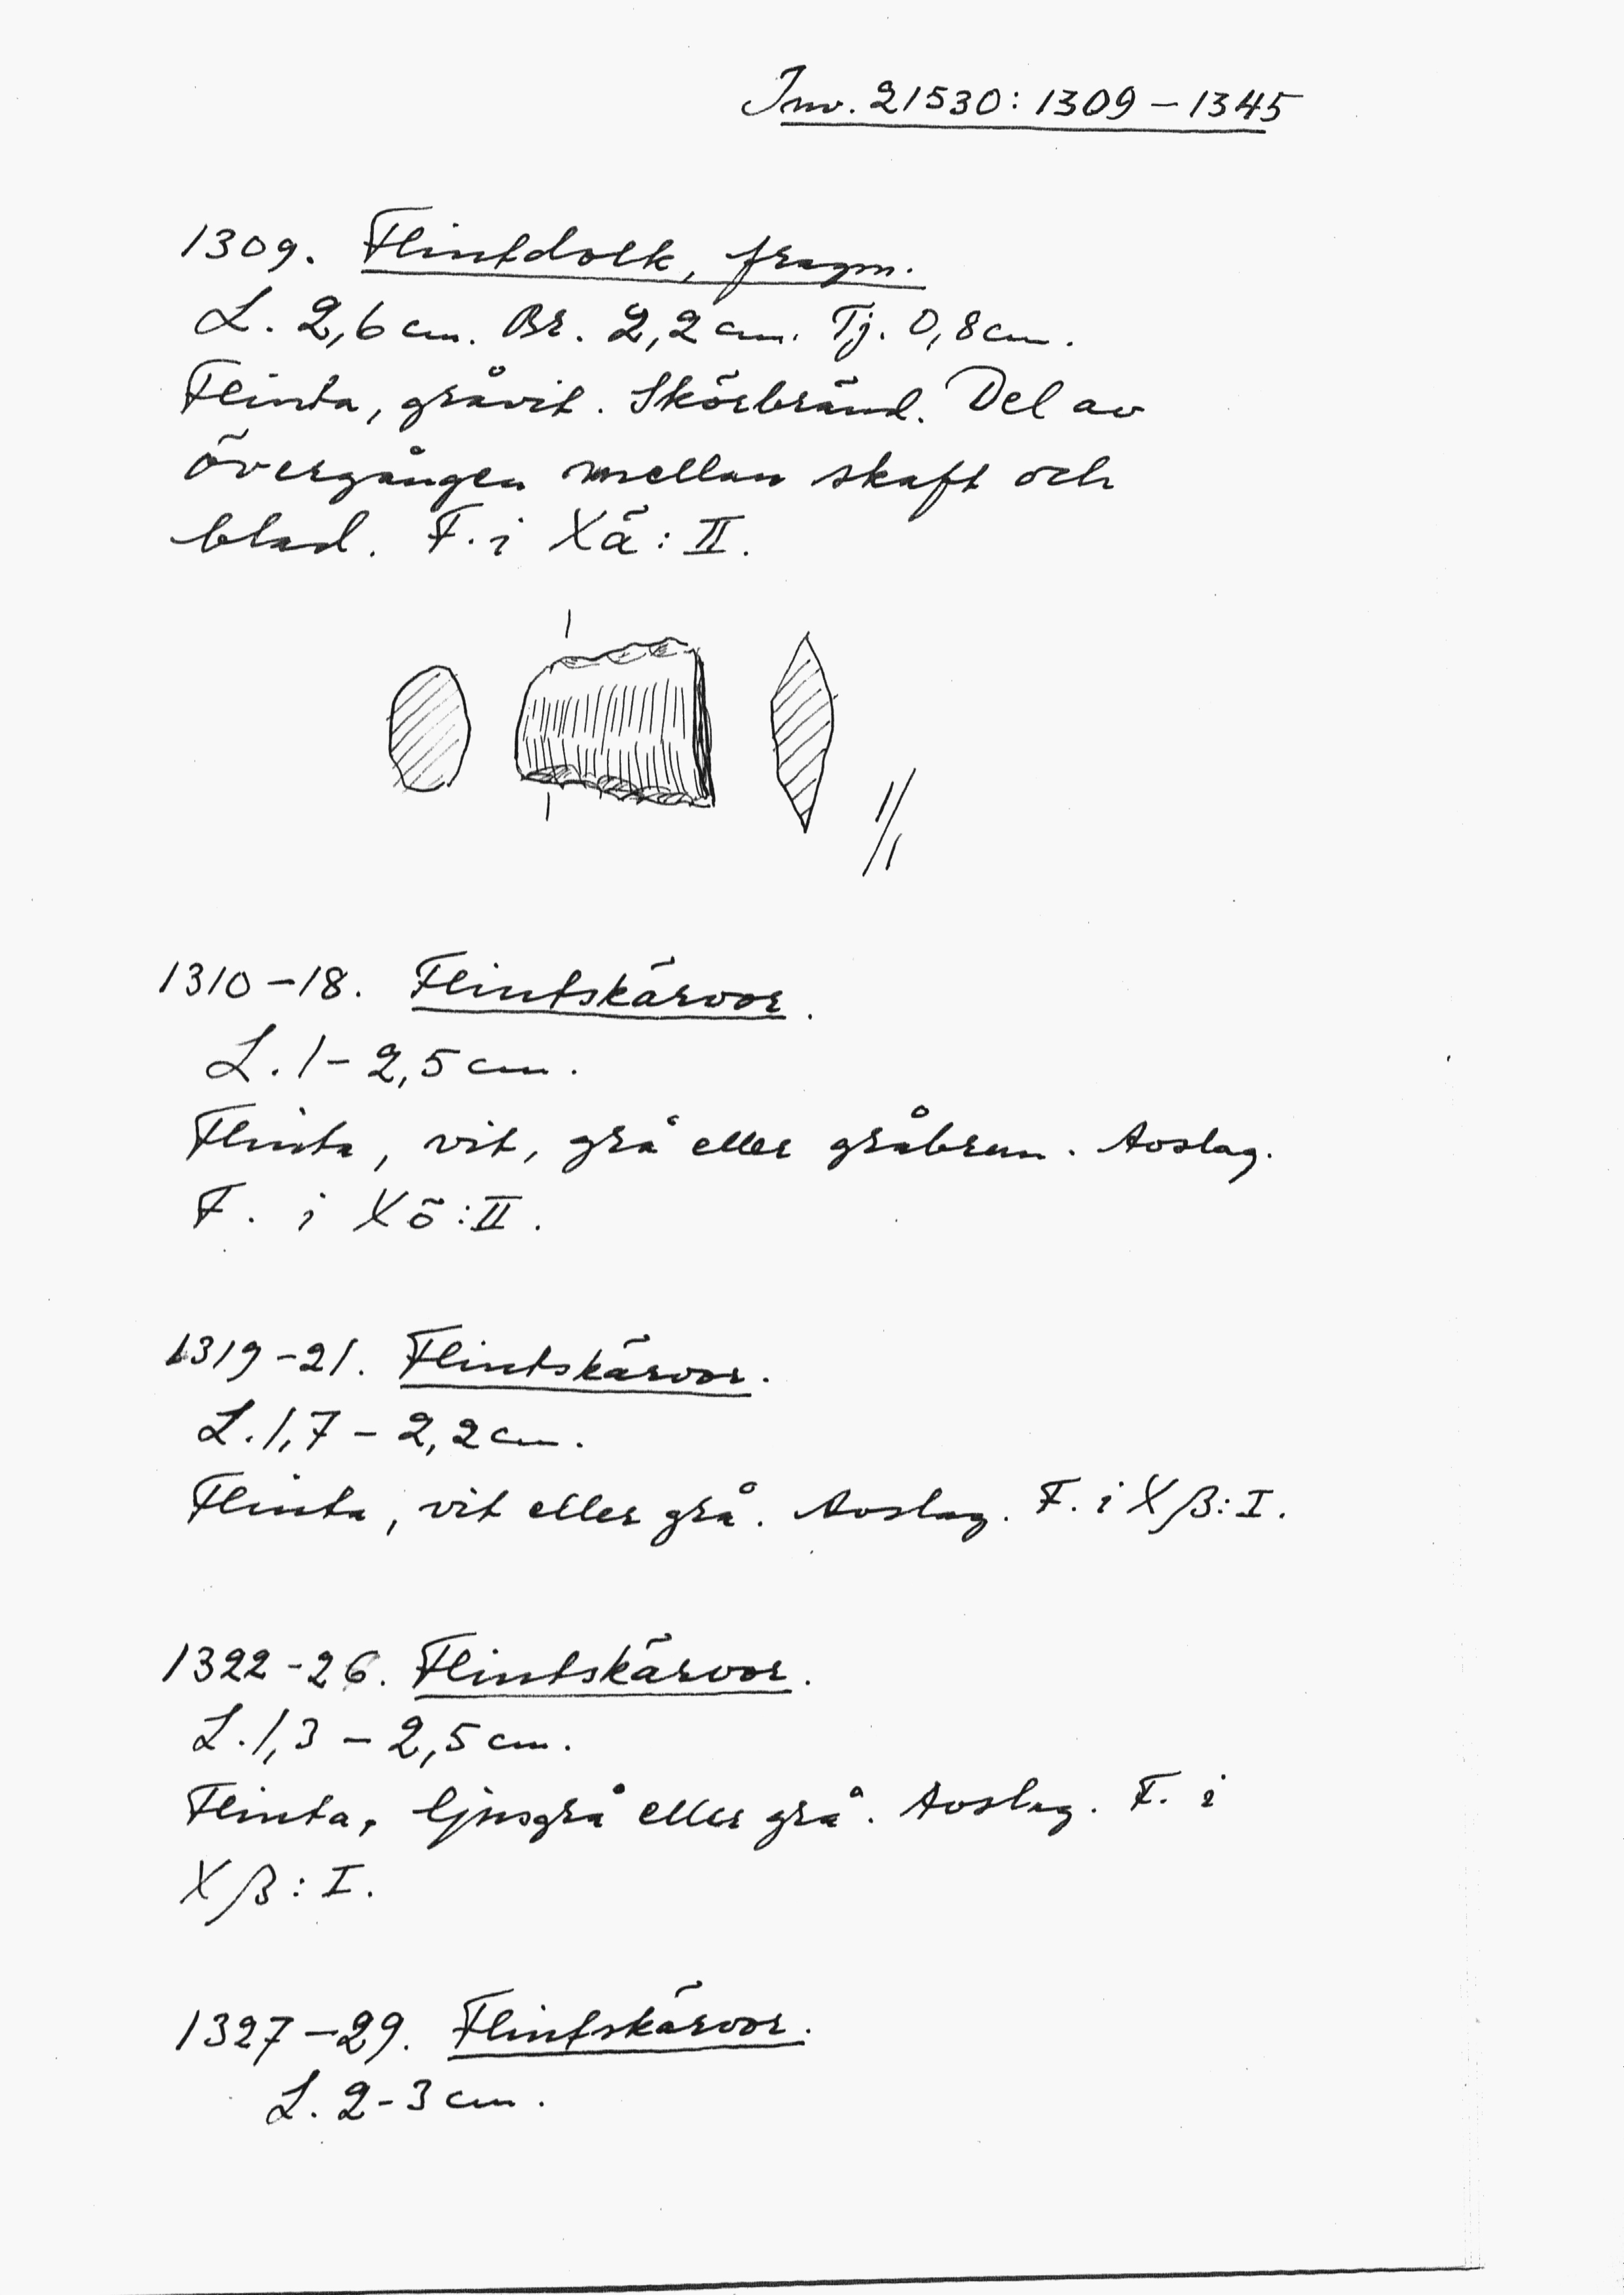 Inv. 21530: 1309 – 1345
1309. Flintdolk, fragm.
L. 2,6 cm. Br. 2,2 cm. Tj. 0,8 cm.
Flinta, gråvit. Skörbränd. Del av
övergången mellan skaft och
blad. F. i Xä: II.
1/1
1310–18. Flintskärvor.
L. 1– 2,5 cm.
Flinta, vit, grå eller gråbrun. Avslag.
F. i Xö: II.
1319–21. Flintskärvor.
L. 1,7 – 2,2 cm.
Flinta, vit eller grå. Avslag. F. i Xβ: I.
1322-26. Flintskärvor.
L. 1,3 – 2,5 cm.
Flinta, ljusgrå eller grå. Avslag. F. i
Xβ: I.
1327–29. Flintskärvor.
L. 2-3 cm.